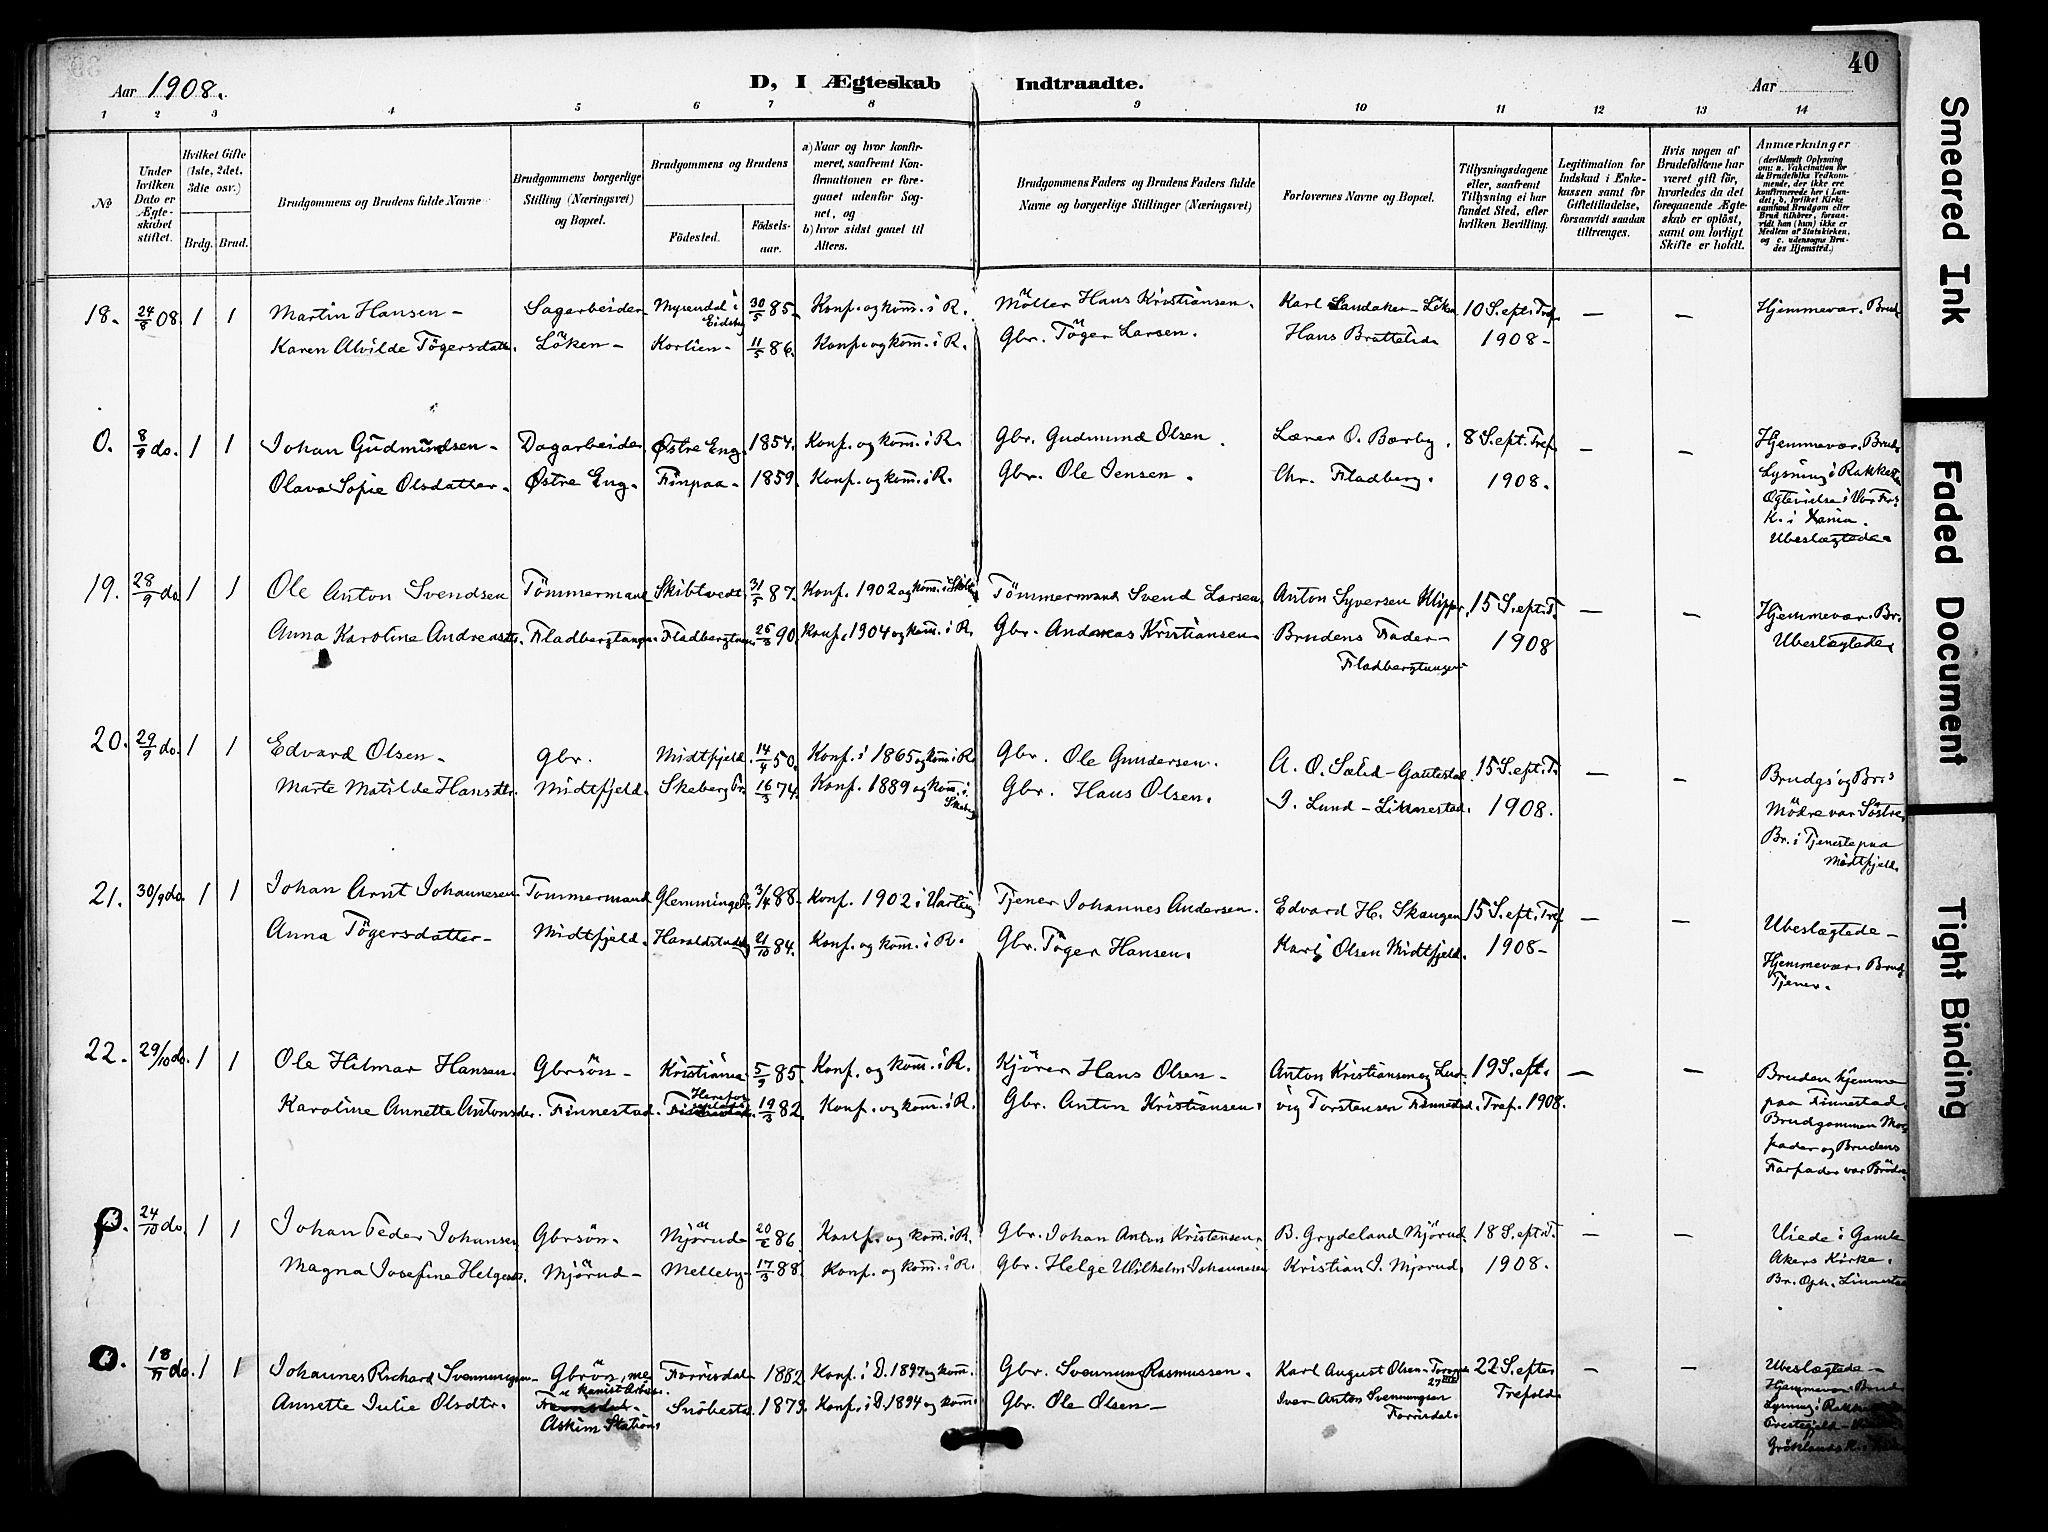 40
Aar 1908.
D, I Ægteskab Indtraadte.
Aar
1 2 3 4 5 6 7 8 9 10 11 12 13 14
No
Under hvilken Dato er Ægteskabet stiftet.
Hvilket Gifte (1ste, 2det, 3die osv.)
Brdg. Brud.
Brudgommens og Brudens fulde Navne
Brudgommens borgerlige Stilling (Næringsvei) og Bopæl.
Brudgommens og Brudens
Födested.
Födselsaar.
a) Naar og hvor konfirmeret, saafremt Konfirmationen er foregaaet udenfor Sognet, og
b) hvor sidst gaaet til Alters.
Brudgommens Faders og Brudens Faders fulde Navne og borgerlige Stillinger (Næringsvei)
Forlovernes Navne og Bopæl.
Tillysningsdagene eller, saafremt Tillysning ei har fundet Sted, efter hvilken Bevilling.
Legitimation for Indskud i Enkekassen samt for Giftetilladelse, forsaavidt saadan tiltrænges.
Hvis nogen af Brudefolkene har været gift før, hvorledes da det foregaaende Ægteskab er opløst, samt om lovligt Skifte er holdt.
Anmærkninger
(deriblandt Oplysning om: a. Vakcination for de Brudefolks Vedkommende, der ikke ere konfirmerede her i Landet; b. hvilket Kirkesamfund Brudgom eller Brud tilhörer, forsaavidt han (hun) ikke er Medlem af Statskirken, og c. udensogns Brudes Hjemsted.)
18. 24/9 08 1 1 Martin Hansen - Sagarbeider Myrendal i Eidsbg 30/5 85. Konf. og kom. i R. Möller Hans Kristiansen. Karl Sandaker Löken 10 S. eft. Tref. — — Hjemmevær. Brud
Karen Alvilde Tögersdatter. Löken - Korlien - 11/5 86. Konf. og kom. i R. Gbr. Töger Larsen. Hans Brattelid. 1908 -
O. 8/9 do. 1 1 Johan Gudmundsen - Dagarbeider Østre Eng. 1854. Konf. og kom. i R. Gbr. Gudmund Olsen. Lærer O. Bærby. 8 S. eft. Tref. — — Hjemmevær. Brud.
Olava Sofie Olsdatter. Østre Eng. Finpaa - 1859. Konf. og kom. i R. Gbr. Ole Jensen. Chr. Fladberg. 1908. Lysning i Rakkestad
Ægtevielse i Vor Fr.s
K. i Xania.
Ubeslægtede.
19. 28/9 do 1 1 Ole Anton Svendsen Tömmermand Skibtvedt. 31/5 87. Konf. 1902 og kom. i Skibtv. Tömmermand Svend Larsen. Anton Syversen Klipper. 15 S. eft. T. — — Hjemmevær. Br.
Anna Karoline Andreasdtr. Fladbergtangen. Fladbergtangen. 90. Konf. 1904 og kom. i R. Gbr. Andreas Kristiansen Brudens Fader - 1908 Ubeslægtede
Fladbergtangen
20. 29/9 do. 1 1 Edvard Olsen - Gbr. Midtfjeld. 14/4 50. Konf. i 1865 og kom. i R. Gbr. Ole Gundersen. A. O. Sælid - Gautestad. 15 S. eft. T. — — Brudgs og Br.s
Marte Matilde Hansdtr. Midtfjeld. Skeberg Fr. 16/3 74. Konf. 1889 og kom. i Skeberg Gbr. Hans Olsen. J. Lund - Linnestad. 1908. Mödre var Söstre.
Br. i Tjeneste paa
Midtfjeld.
21. 30/9 do. 1 1 Johan Arnt Johannesen Tommermand Glemminge Fr. 3/4 88. Konf. 1902 i Varteig Tjener Johannes Andersen. Edvard H. Skaugen 15 S. eft. Tref. — — Ubeslægtede -
Anna Tögersdatter - Midtfjeld. Haraldstad 21/10 84. Konf. og kom. i R. Gbr. Töger Hansen. Karl Olsen Midtfjeld. 1908 - Hjemmevær. Brud.
Tjener.
22. 29/10 do. 1 1 Ole Hilmar Hansen. Gbrsön - Kristiania 5/9 85. Konf. og kom. i R. Kjörer Hans Olsen - Anton Kristiansen og Lud- 19 S. eft. — — Bruden hjemme
Karoline Annette Antonsdtr. Finnestad. 19/3 82. Konf. og kom. i R. Gbr. Anton Kristiansen. vig Torstensen Finnestad. Tref. 1908. paa Finnestad.
Brudgommen Mor-
fader og Brudens
Farfader var Brödre.
O. 24/10 do. 1 1 Johan Peder Johansen Gbrsön - Mjörud 86. Konf. og kom. i R. Gbr. Johan Anton Kristensen. B. Grydeland Mjörud. 18 S. eft. T. — — Viede i Gamle
Magna Josefine Helgesdtr. Mjörud - Melleby - 17/3 88. Konf. og kom. i R. Gbr. Helge Wilhelm Johannesen Kristian J. Mjörud. 1908. Akers Kirke.
Br. Oph. Linnestad
O. 18/11 do. 1 1 Johannes Richard Svenningsen - Gbrsön, Forrisdal. 1882. Konf. i D. 1897 og kom. Gbr. Svennung Rasmussen. Karl August Olsen - 22 S. efter — — Ubeslægtede -
Annette Julie Olsdtr. Askim Station. Snöbestad 1879. Konf. i D. 1894 og kom. Gbr. Ole Olsen - Iver Anton Svenningsen Forrisdal. Trefold. Hjemmevær. Brud
Lysning i Rakkestad
Grönlands K. i
Smeared Ink
Faded Document
Tight Binding